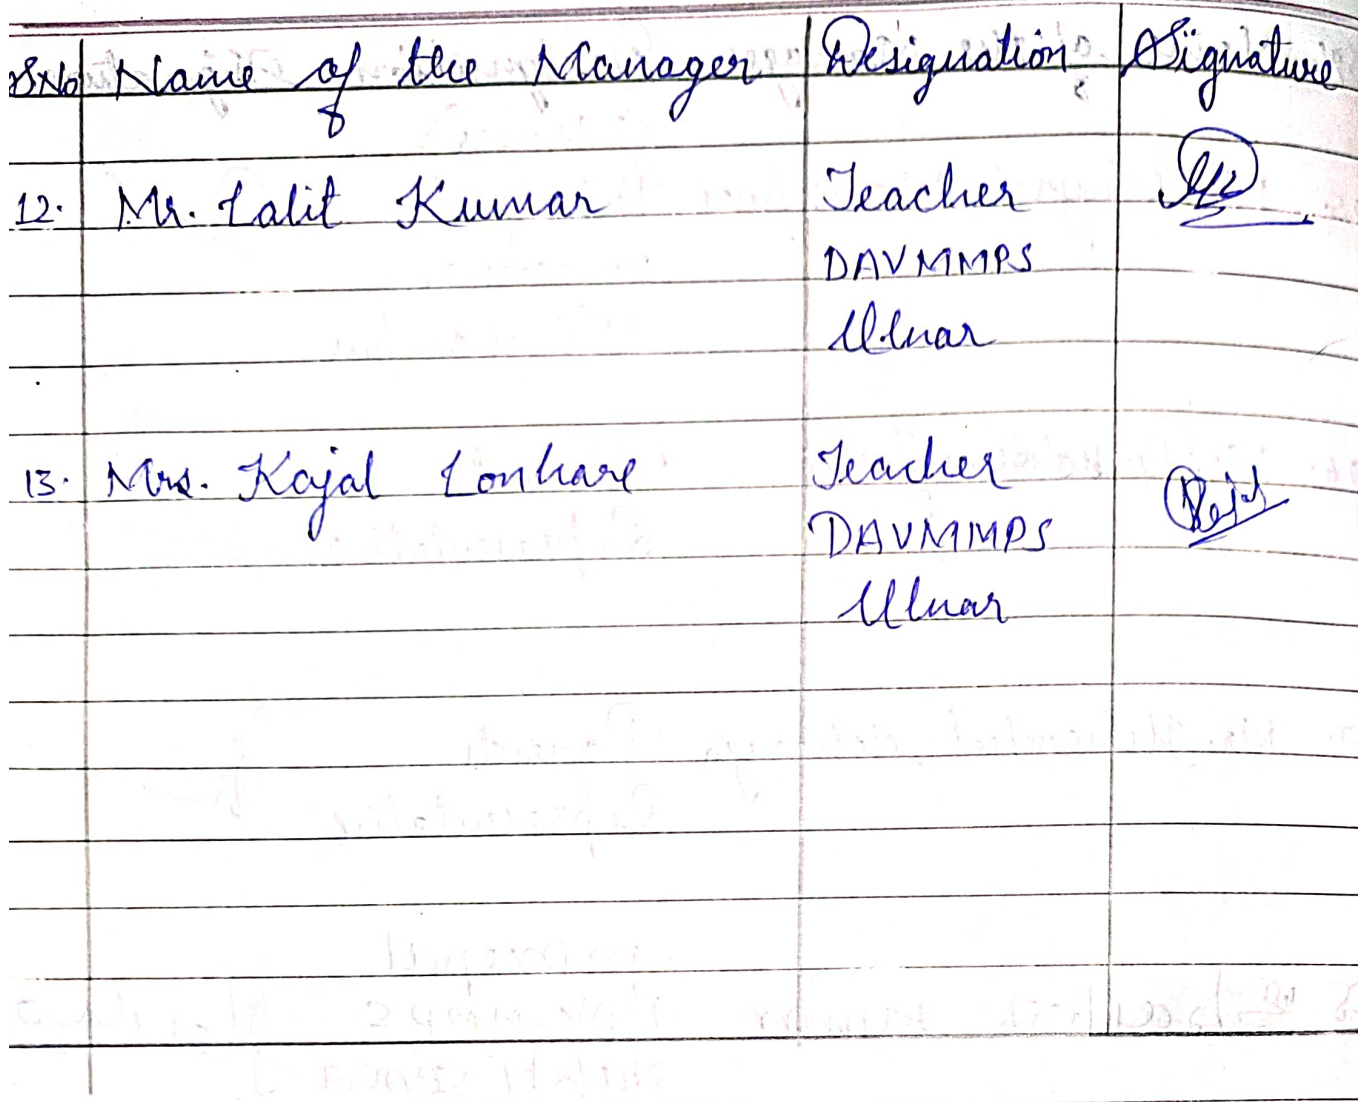 S.No Name of the Manager Designation Signature
12. Mr. Lalit Kumar Teacher
DAVMMPS
Ulnar
13. Mrs. Kajal Lonhare Teacher
DAVMMPS
Ulnar